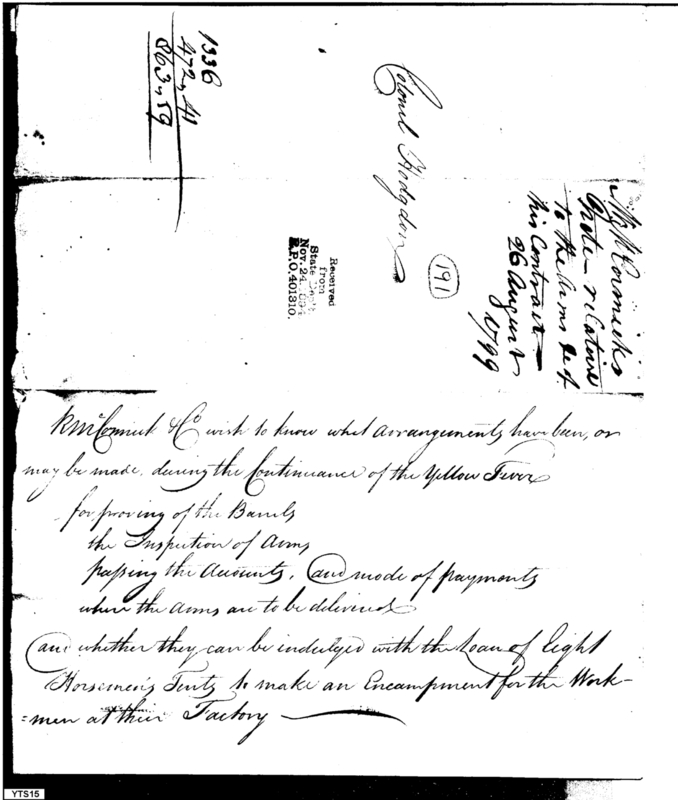 1336
472,,41
863,,59
Colonel Hodgdon
191
Received
from
State Dept
Nov. 24,
R.P.O. 401310.
McCormick's
note – relative
to the Arms
his Contract –
26 August
1799
R McCormick & Co wish to know what arrangements have been, or
may be made, during the Continuance of the Yellow Fever
for proving of the Barrels
the Inspection of Arms
passing the Accounts, and mode of payments
where the Arms are to be delivered
and whether they can be indulged with the Loan of Eight
Horsemen's Tents to make an Encampment for the Work-
=men at their Factory
YTS15